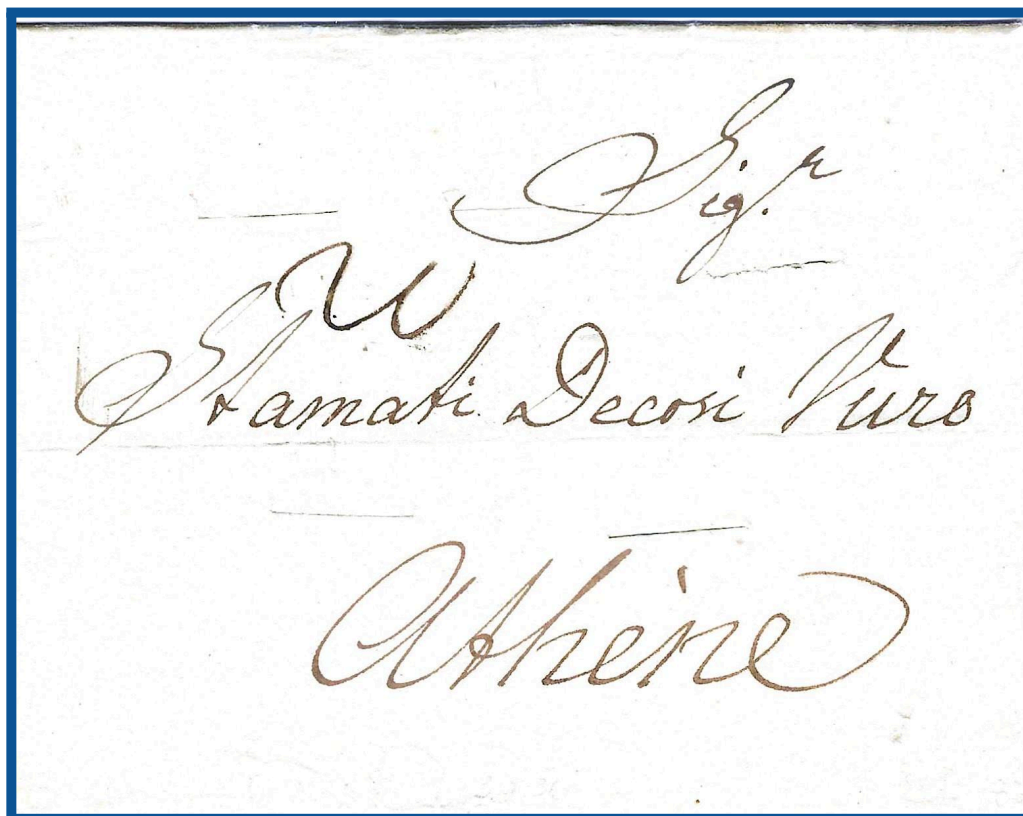 Sig.r
Stamati Decosi Vuro
Athene